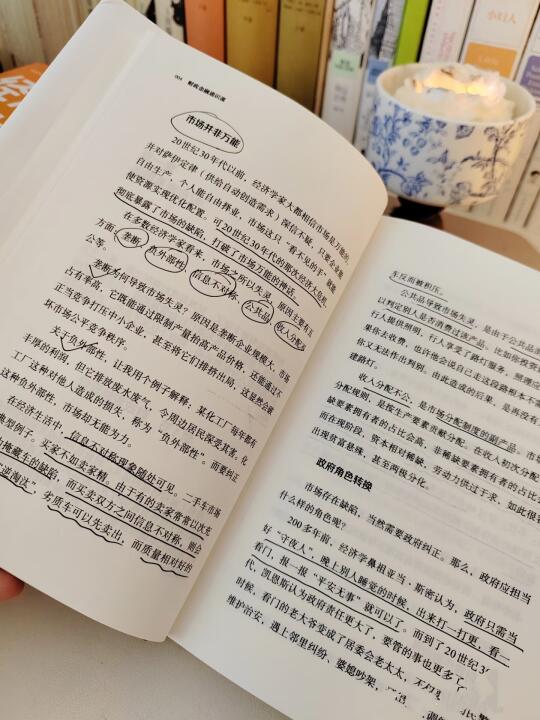 004 财政金融通识课
市场并非万能
20世纪30年代以前，经济学家大都相信市场是万能的，
并对萨伊定律（供给自动创造需求）深信不疑，只要企业能
自由生产，个人能自由择业，市场这只“看不见的手”就能
使资源实现优化配置。可20世纪30年代的那次经济大危机，
彻底暴露了市场的缺陷，打破了市场万能的神话。
在多数经济学家看来，市场之所以失灵，原因主要有五
方面：垄断、负外部性、信息不对称、公共品、收入分配不
公等。
垄断为何导致市场失灵？原因是垄断企业规模大，市场
占有率高，它既能通过限制产量抬高产品价格，还能通过不
正当竞争打压中小企业，甚至将它们排挤出局，这显然会破
坏市场公平竞争秩序。
关于负外部性，让我用个例子解释：某化工厂每年都有
丰厚的利润，但它排放废水废气，令周边居民深受其害。化
工厂这种对他人造成的损失，称为“负外部性”。而要纠正
这种负外部性，市场却无能为力。
在经济生活中，信息不对称现象随处可见。二手车市场
典型例子。买家不如卖家精。由于有的卖家常常以次充
掩藏车的缺陷，而买卖双方之间信息不对称，则会
“逆淘汰”，劣质车可以先卖出，而质量相对好的
车反而被积压。
公共品导致市场失灵，是由于公共品消
以判定别人是否消费过该产品。比如你投资
行人提供照明，行人享受了路灯服务，照理应
果你去收费，也许他会说自己走这段路根本不需
你又无法作出判别。由此造成的后果，是再没有
建路灯。
收入分配不公，是市场分配制度的副产品。市场
分配规则，是按生产要素贡献分配。在收入初次分配
缺要素拥有者的占比会高，非稀缺要素拥有者的占比
而在现阶段，资本相对稀缺，劳动力供过于求，如此很容
出现贫富悬殊，甚至两极分化。
政府角色转换
市场存在缺陷，当然需要政府纠正。那么，政府应担当
什么样的角色呢？
200多年前，经济学鼻祖亚当·斯密认为，政府只需当
好“守夜人”，晚上别人睡觉的时候，出来打一打更，看一
看门，报一报“平安无事”就可以了。而到了20世纪3
代，凯恩斯认为政府责任更大了，要管的事也更多了
时候，看门的老大爷变成了居委会老太太，不仅
维护治安，遇上邻里纠纷、婆媳吵架，
小妇人